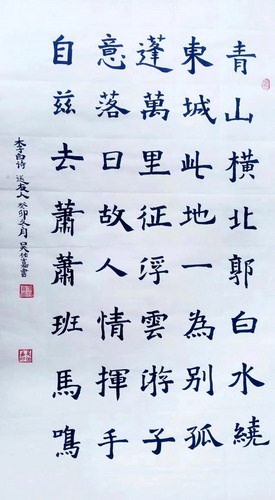 青山橫北郭白水繞
東城此地一為別孤
蓬萬里征浮雲游子
意落日故人情揮手
自茲去蕭蕭班馬鳴
李白诗 送友人 癸卯冬月 吴書